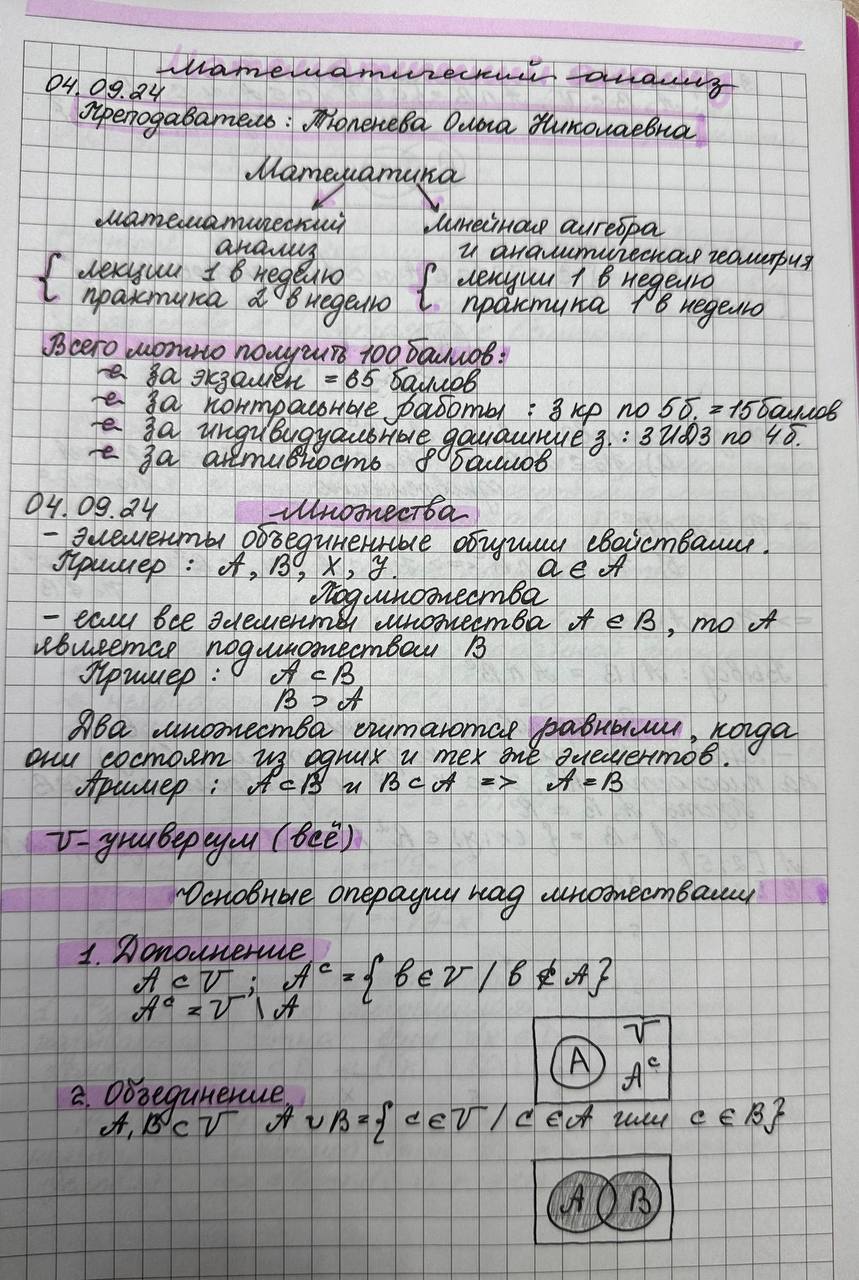 Математический анализ
04.09.24
Преподаватель: Тюленева Ольга Николаевна
Математика
математический анализ
{ лекции 1 в неделю
практика 2 в неделю
линейная алгебра
и аналитическая геометрия
{ лекции 1 в неделю
практика 1 в неделю
Всего можно получить 100 баллов:
за экзамен = 65 баллов
за контрольные работы : 3 кр по 5б. = 15 баллов
за индивидуальные домашние з. : 3 ИДЗ по 4б.
за активность 8 баллов
04.09.24 Множества
- элементы объединенные общими свойствами.
Пример : A, B, X, Y. a ∈ A
Подмножества
- если все элементы множества A ∈ B, то A
является подмножеством B
Пример : A ⊂ B
B ⊃ A
Два множества считаются равными, когда
они состоят из одних и тех же элементов.
Пример : A ⊂ B и B ⊂ A => A = B
U - универсум (всё)
Основные операции над множествами
1. Дополнение
A ⊂ U ; Aᶜ = { b ∈ U / b ∉ A }
Aᶜ = U \ A
A U
Aᶜ
2. Объединение
A, B ⊂ U A ∪ B = { c ∈ U / c ∈ A или c ∈ B }
A B